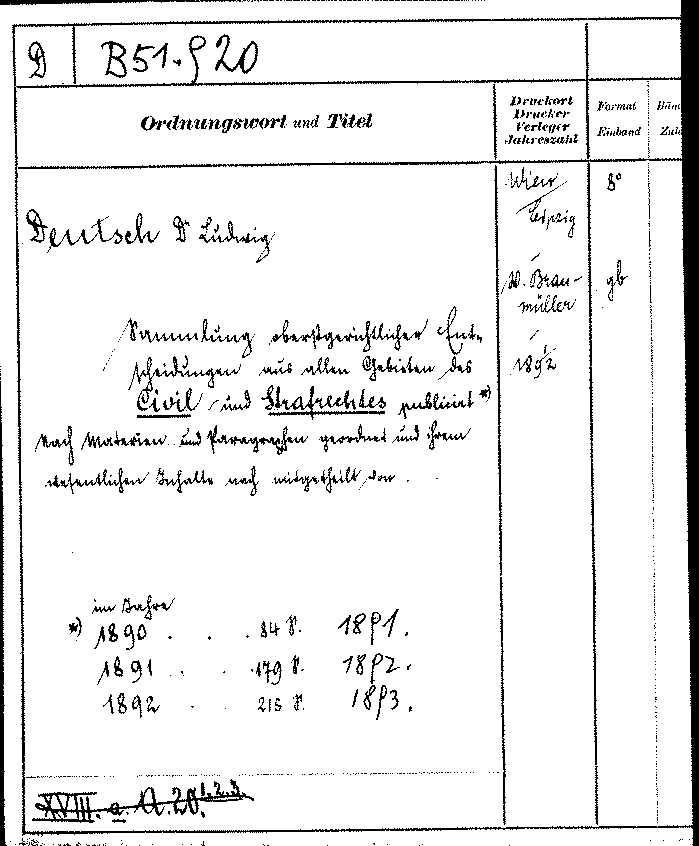 D B51.920
Ordnungswort und Titel
Druckort
Drucker
Verleger
Jahreszahl
Format
Einband
Deutsch Dr Ludwig
Wien
Leipzig
8°
W. Brau-
müller
gb
1892
Sammlung oberstgerichtlicher Ent-
scheidungen aus allen Gebieten des
Civil- und Strafrechtes publicirt *)
nach Materien und Paragraphen geordnet und ihrem
wesentlichen Inhalte nach mitgetheilt von .
im Jahre
*) 1890 . . . 84 S. 1891.
1891 . . . 179 S. 1892.
1892 . . 215 S. 1893.
XVIII. a. A.20.1.2.3.